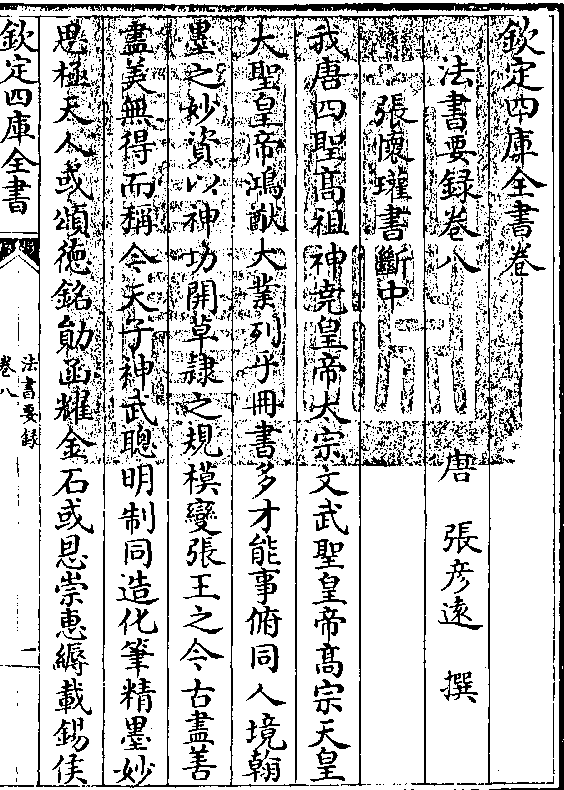 欽定四庫全書卷
法書要録卷八
唐 張彦遠 撰
張懷瓘書斷中
我唐四聖髙祖神堯皇帝太宗文武聖皇帝髙宗天皇
大聖皇帝鴻猷大業列乎冊書多才能事俯同人境翰
墨之妙資以神功開草隷之規模變張王之今古盡善
盡美無得而稱今天子神武聰明制同造化筆精墨妙
思極天人或頌徳銘勛函耀金石或恩崇惠縟載錫侯
欽定四庫全書
法書要録
卷八
一